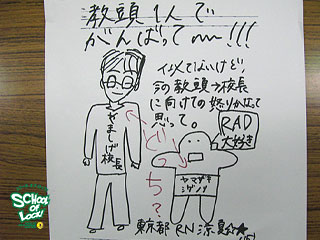 教頭1人で
がんばってー!!!
似てないけど、
の教頭→校長
に向けての怒りかなって
思って。
やましげ校長
どっち?
RAD
大好き
ヤマザキ
シゲノリ
東京都 RN 涼夏☆
SCHOOL
OF
LOCK!